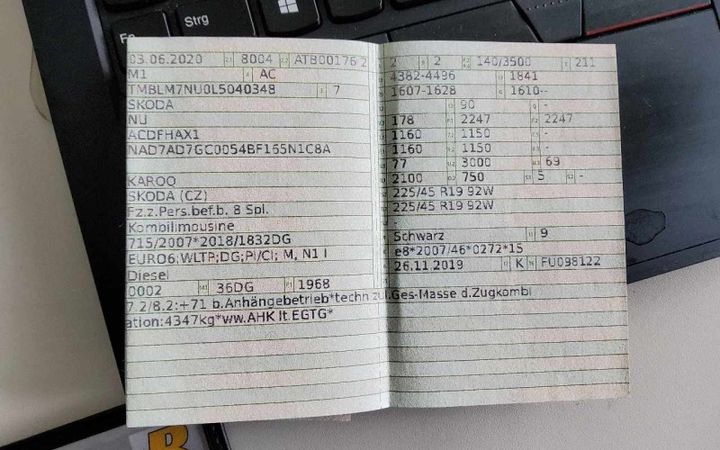 Strg
Fn
03.06.2020 8004 ATB00176 2
M1 AC
TMBLM7NU0L5040348 7
SKODA
NU
ACDFHAX1
NAD7AD7GC0054BF155N1C8A
KAROQ
SKODA (CZ)
Fz.z.Pers.bef.b. 8 Spl.
Kombilimousine
715/2007*2018/1832DG
EURO6;WLTP;DG;PI/CI; M, N1 I
Diesel
0002 36DG 1968
7.2/8.2:+71 b.Anhängebetrieb*techn zul.Ges-Masse d.Zugkombi
ation:4347kg*ww.AHK lt.EGTG*
2 2 140/3500 211
4382-4496 1841
1607-1628 1610--
90 -
178 2247 2247
1160 1150 -
1160 1150 -
77 3000 69
2100 750 5 -
225/45 R19 92W
225/45 R19 92W
-
Schwarz 9
e8*2007/46*0272*15
26.11.2019 K FU098122